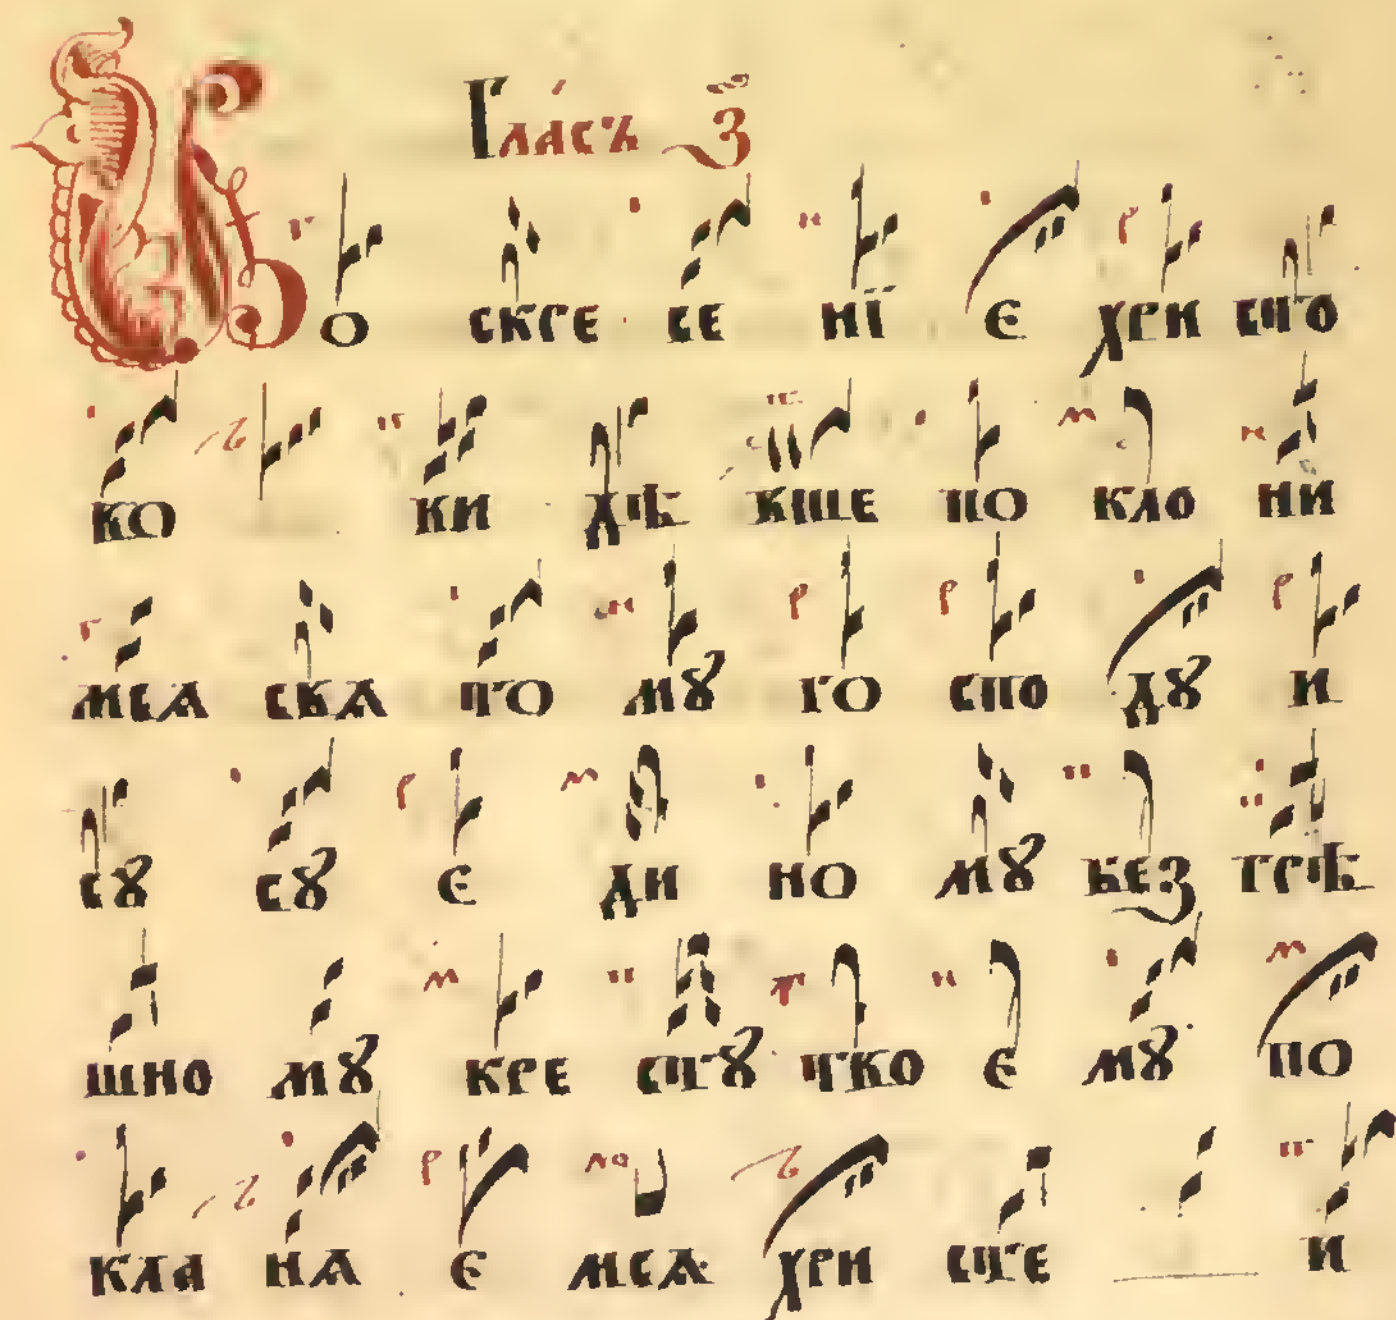 Гла́съ З҃
Во скре се нї е хри сто
во ви дѣ вше по кло ни
мсѧ свѧ то мꙋ го спо дꙋ и
сꙋ сꙋ є ди но мꙋ без грѣ
шно мꙋ кре стꙋ тво є мꙋ по
кла нѧ є мсѧ хри сте и